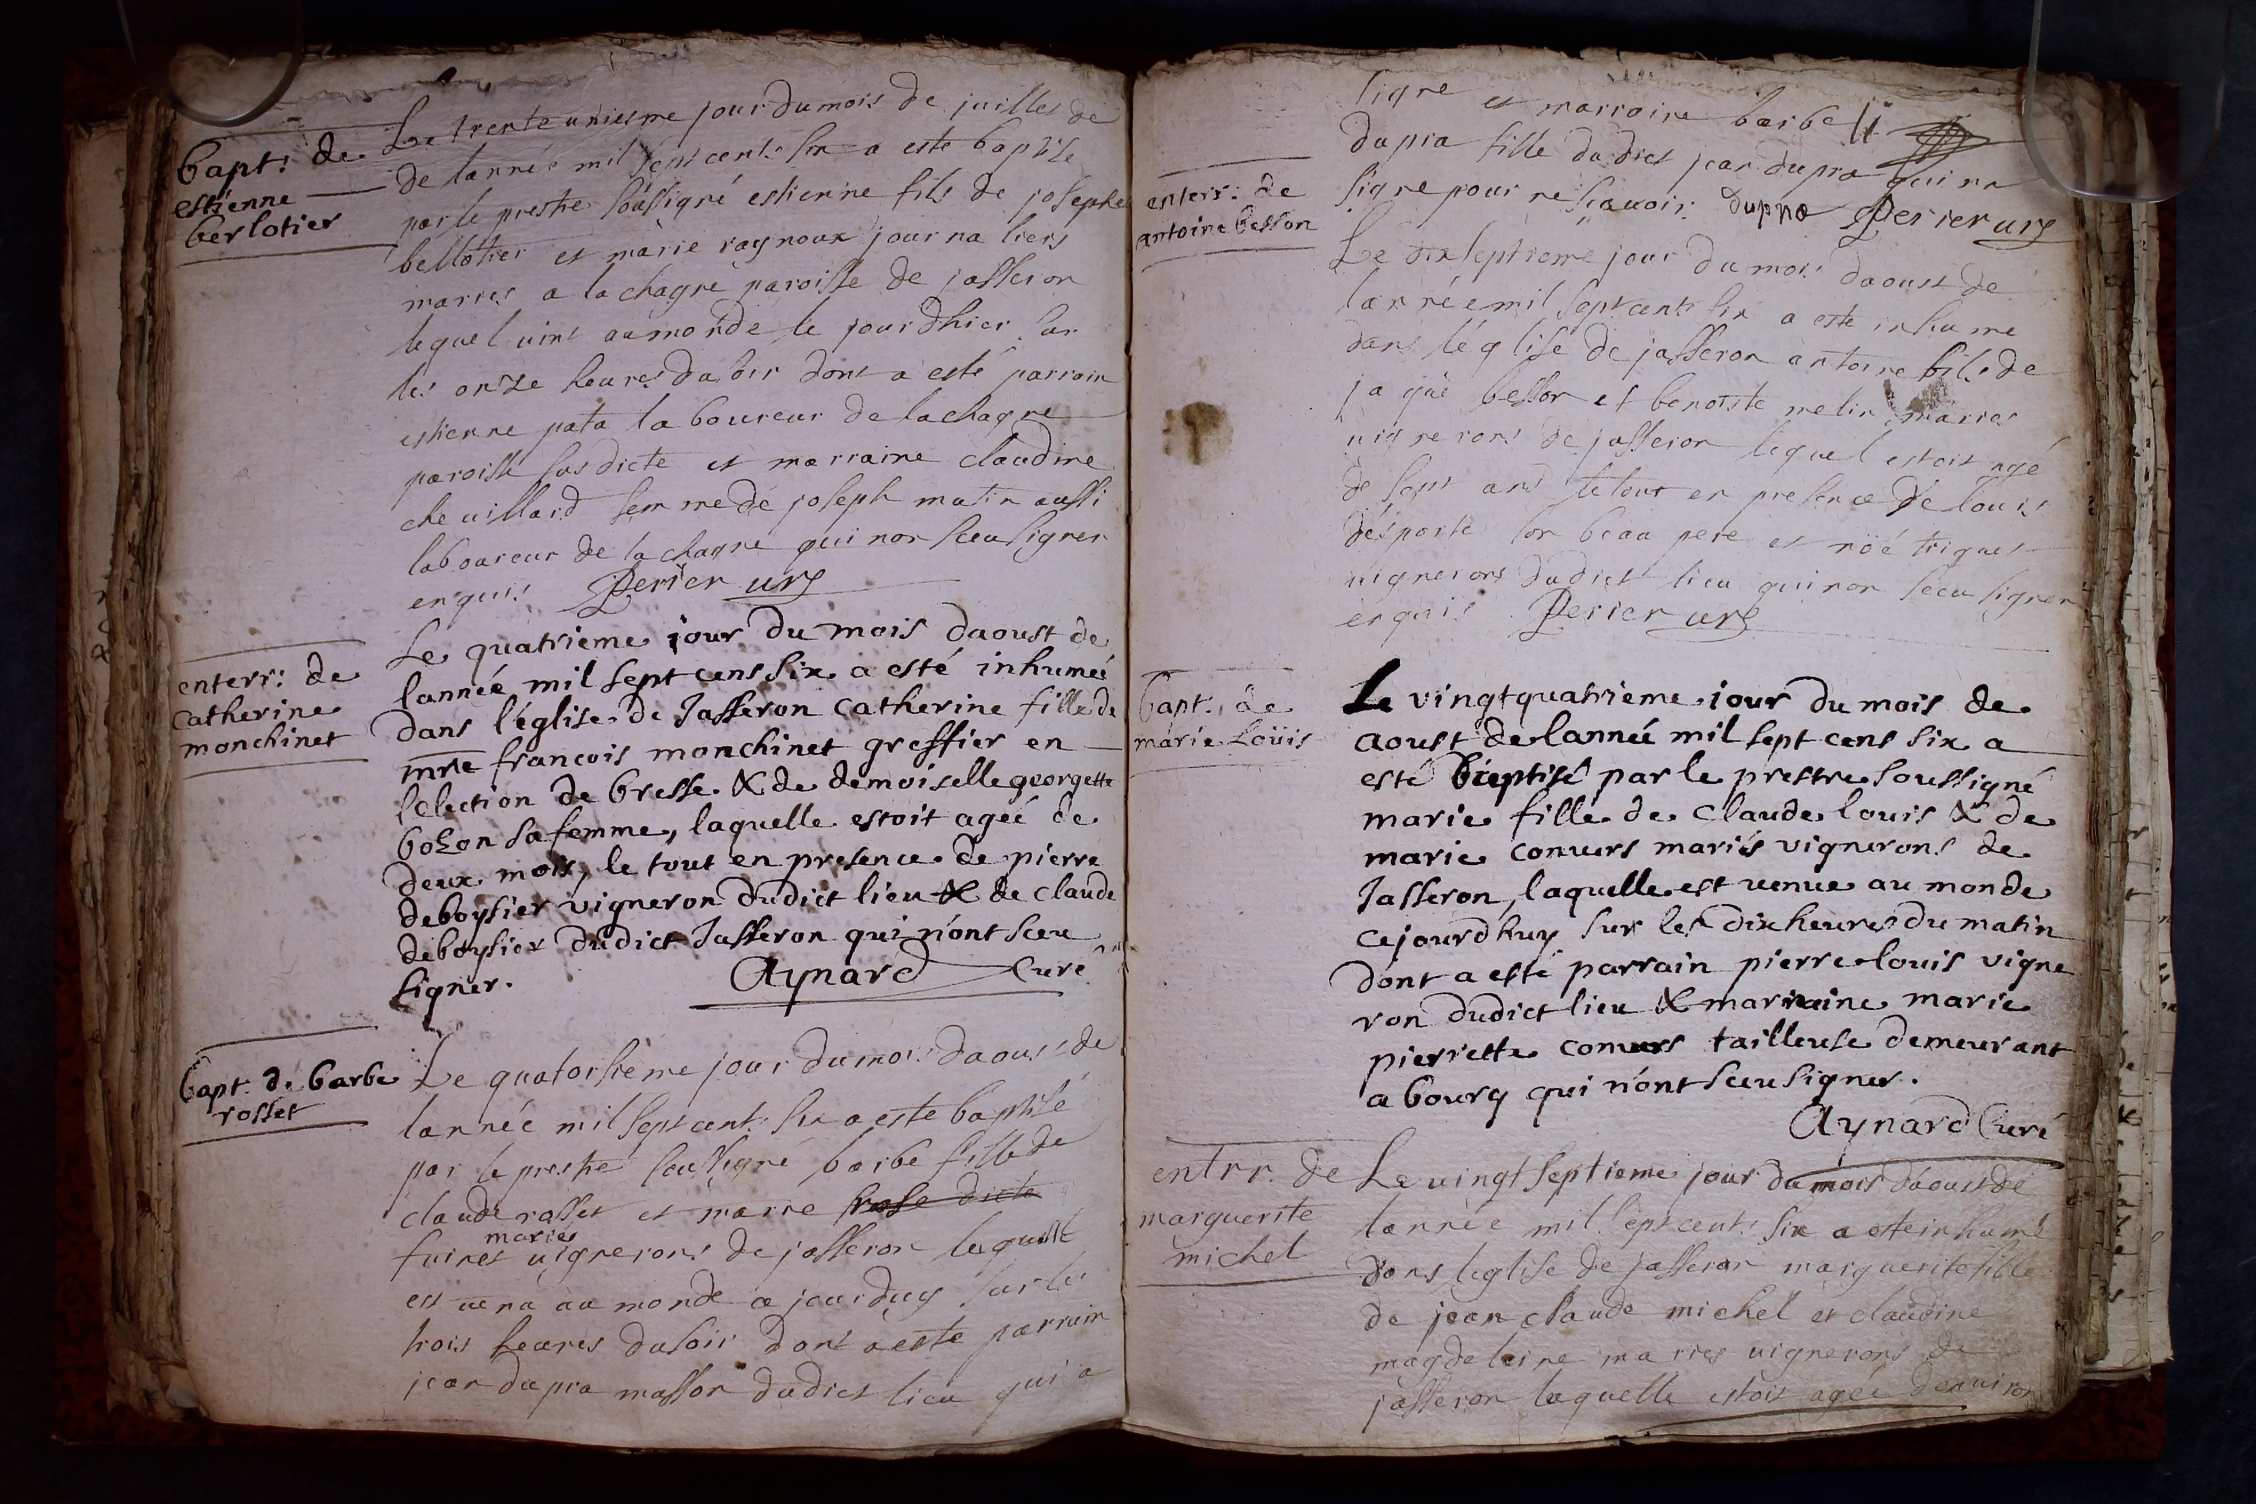 bapt: de
estienne
berlotier
Le trente uniesme jour du mois de juillet de
de lannée mil sept cents six a este baptise
par le prestre soussigné estienne fils de josephe
bellotier et marie raynoux journaliers
maries a la chagne paroisse de jasseron
lequel vint au monde le jour dhier sur
les onze heures du soir dont a esté parrain
estienne pata laboureur de la chagne
paroisse susdicte et marraine claudine
cheuillard femme de joseph matin aussi
laboureur de la chagne qui non sceu signer
enquis Perier
enterr: de
catherine
monchinet
Le quatrieme jour du mois daoust de
lannée mil sept cens six a esté inhumeé
dans l'église de Jasseron catherine fille de
mre francois monchinet greffier en
lelection de bresse & de demoiselle georgette
bozon sa femme, laquelle estoit ageé de
deux mois, le tout en presence de pierre
deboysier vigneron dudict lieu & de claude
deboysier dudict Jasseron qui n'ont sceu
signer. Aynard Curé
bapt. de barbe
rosset
Le quatorsieme jour du mois daoust de
lannée mil sept cents six a este baptisé
par le prestre soussigné barbe fille de
claude rosset et marie
mariés
fuinet uignerons de jasseron laquelle
est uenu au monde a jourduy sur les
trois heures du soir dont a este parrain
jean dupra masson dudict lieu qui a
signe et marraine barbe
dupra fille dudict jean dupra qui na
signe pour ne scauoir. dupra Perier
enterr: de
antoine besson
Le dix septieme jour du mois daoust de
lannée mil sept cents six a este inhume
dans l'église de jasseron antoine fils de
jaque besson et benoiste melin maries
uignerons de jasseron lequel estoit agé
de sept ans le tout en presence de louis
desporte son beau pere et noé triquet
uignerons dudict lieu qui non sceu signer
enquis Perier
bapt. de
marie Loüis
Le vingtquatrieme jour du mois de
aoust de lannée mil sept cens six a
esté baptisé par le prestre soussigné
marie fille de Claude louis & de
marie conuers mariés vignerons de
Jasseron, laquelle est uenue au monde
cejourdhuy sur les dix heures du matin
dont a esté parrain pierre louis vigne
ron dudict lieu & marraine marie
pierrette conuers tailleuse demeurant
a bourg qui n'ont sceu signer.
Aynard Curé
enterr. de
marguerite
michel
Le uingt septieme jour du mois daoust de
lannée mil sept cents six a este inhumé
dans leglise de jasseron marguerite fille
de jean claude michel et claudine
magdeleine maries uignerons de
jasseron laquelle estoit agée denuiron